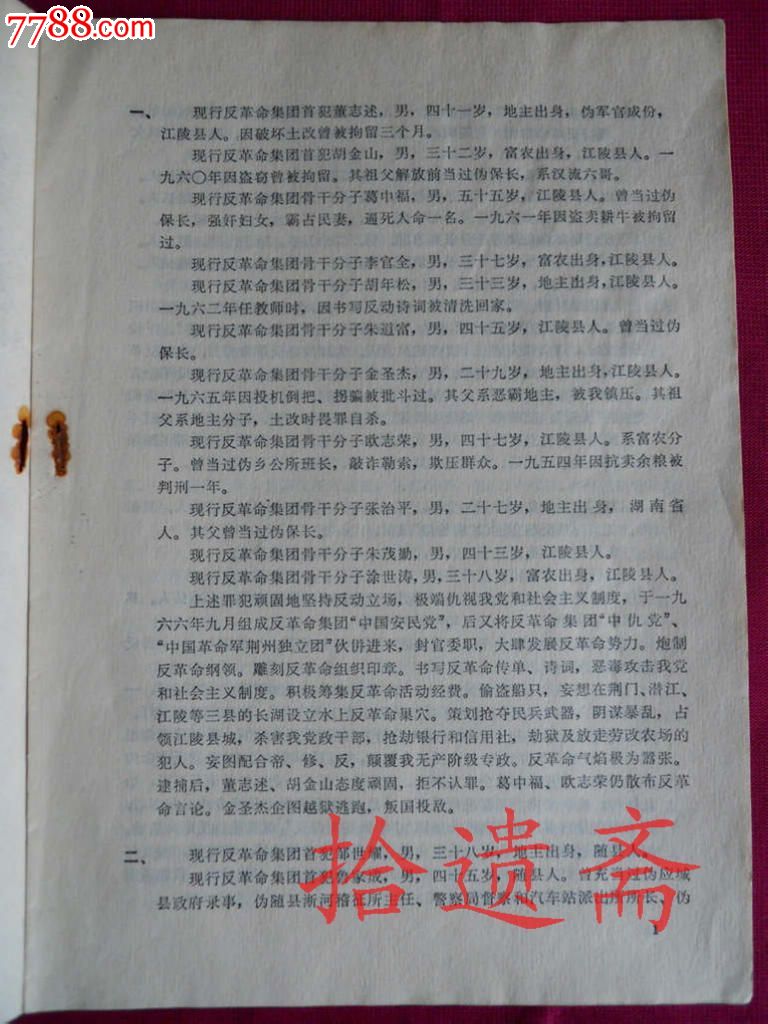 7788.com
一、 现行反革命集团首犯董志述，男，四十一岁，地主出身，伪军官成份，
江陵县人。因破坏土改曾被拘留三个月。
现行反革命集团首犯胡金山，男，三十二岁，富农出身，江陵县人。一
九六〇年因盗窃曾被拘留。其祖父解放前当过伪保长，系汉流六哥。
现行反革命集团骨干分子葛中福，男，五十五岁，江陵县人。曾当过伪
保长，强奸妇女，霸占民妻，逼死人命一名。一九六一年因盗卖耕牛被拘留
过。
现行反革命集团骨干分子李官全，男，三十七岁，富农出身，江陵县人。
现行反革命集团骨干分子胡年松，男，三十三岁，地主出身，江陵县人。
一九六二年任教师时，因书写反动诗词被清洗回家。
现行反革命集团骨干分子朱道富，男，四十五岁，江陵县人。曾当过伪
保长。
现行反革命集团骨干分子金圣杰，男，二十九岁，地主出身，江陵县人。
一九六五年因投机倒把、拐骗被批斗过。其父系恶霸地主，被我镇压。其祖
父系地主分子，土改时畏罪自杀。
现行反革命集团骨干分子欧志荣，男，四十七岁，江陵县人。系富农分
子。曾当过伪乡公所班长，敲诈勒索，欺压群众。一九五四年因抗卖余粮被
判刑一年。
现行反革命集团骨干分子张治平，男，二十七岁，地主出身，湖南省
人。其父曾当过伪保长。
现行反革命集团骨干分子朱茂勋，男，四十三岁，江陵县人。
现行反革命集团骨干分子涂世涛，男，三十八岁，富农出身，江陵县人。
上述罪犯顽固地坚持反动立场，极端仇视我党和社会主义制度，于一九
六六年九月组成反革命集团“中国安民党”，后又将反革命集团“中仇党”、
“中国革命军荆州独立团”伙併进来，封官委职，大肆发展反革命势力。炮制
反革命纲领。雕刻反革命组织印章。书写反革命传单、诗词，恶毒攻击我党
和社会主义制度。积极筹集反革命活动经费。偷盗船只，妄想在荆门、潜江、
江陵等三县的长湖设立水上反革命巢穴。策划抢夺民兵武器，阴谋暴乱，占
领江陵县城，杀害我党政干部，抢劫银行和信用社，劫狱及放走劳改农场的
犯人。妄图配合帝、修、反，颠覆我无产阶级专政。反革命气焰极为嚣张。
逮捕后，董志述、胡金山态度顽固，拒不认罪。葛中福、欧志荣仍散布反革
命言论。金圣杰企图越狱逃跑，叛国投敌。
二、 现行反革命集团首犯邹世耀，男，三十八岁，地主出身，随县人。
现行反革命集团首犯鲁家成，男，四十五岁，随县人。曾充当过伪应城
县政府录事，伪随县淅河稽征所主任、警察局督察和汽车站派出所所长、伪
拾遗斋
1